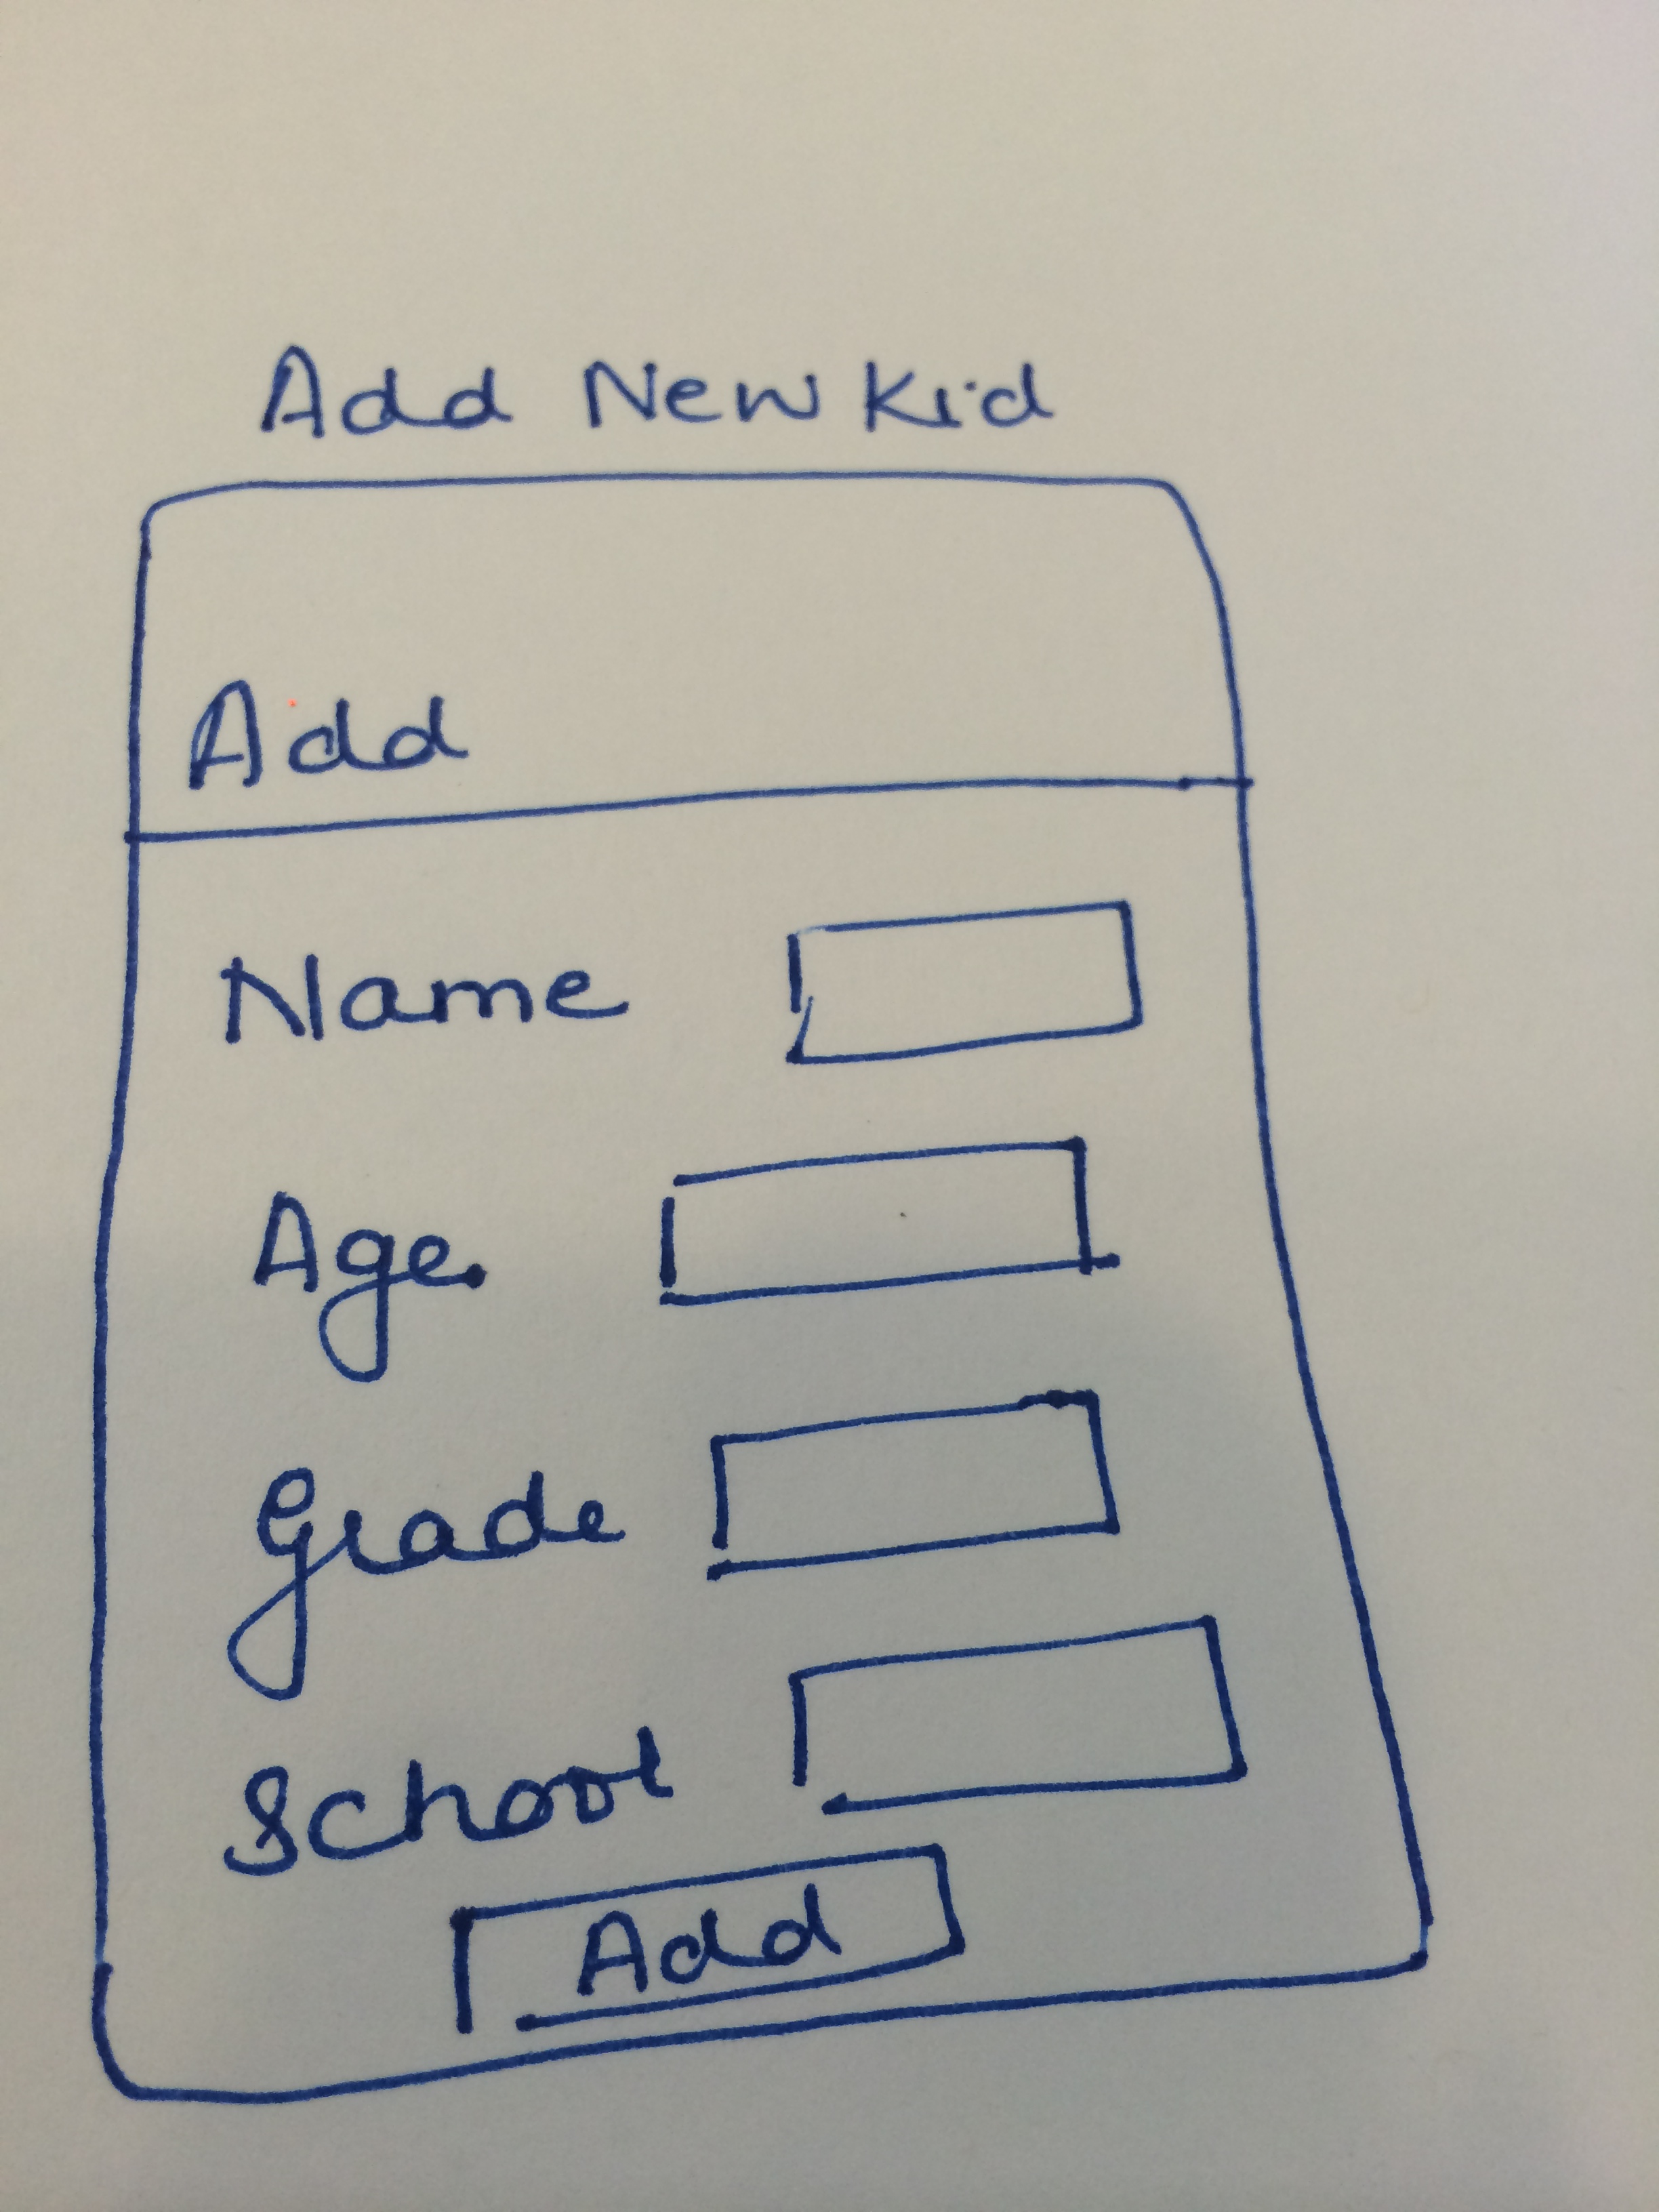 Add New Kid
Add
Name
Age
Grade
School
Add